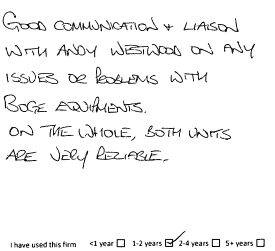 GOOD COMMUNICATION + LIAISON
WITH ANDY WESTWOOD ON ANY
ISSUES OR PROBLEMS WITH
BOGE EQUIPMENTS.
ON THE WHOLE, BOTH UNITS
ARE VERY RELIABLE.
I have used this firm <1 year ☐ 1-2 years ☑ 2-4 years ☐ 5+ years ☐